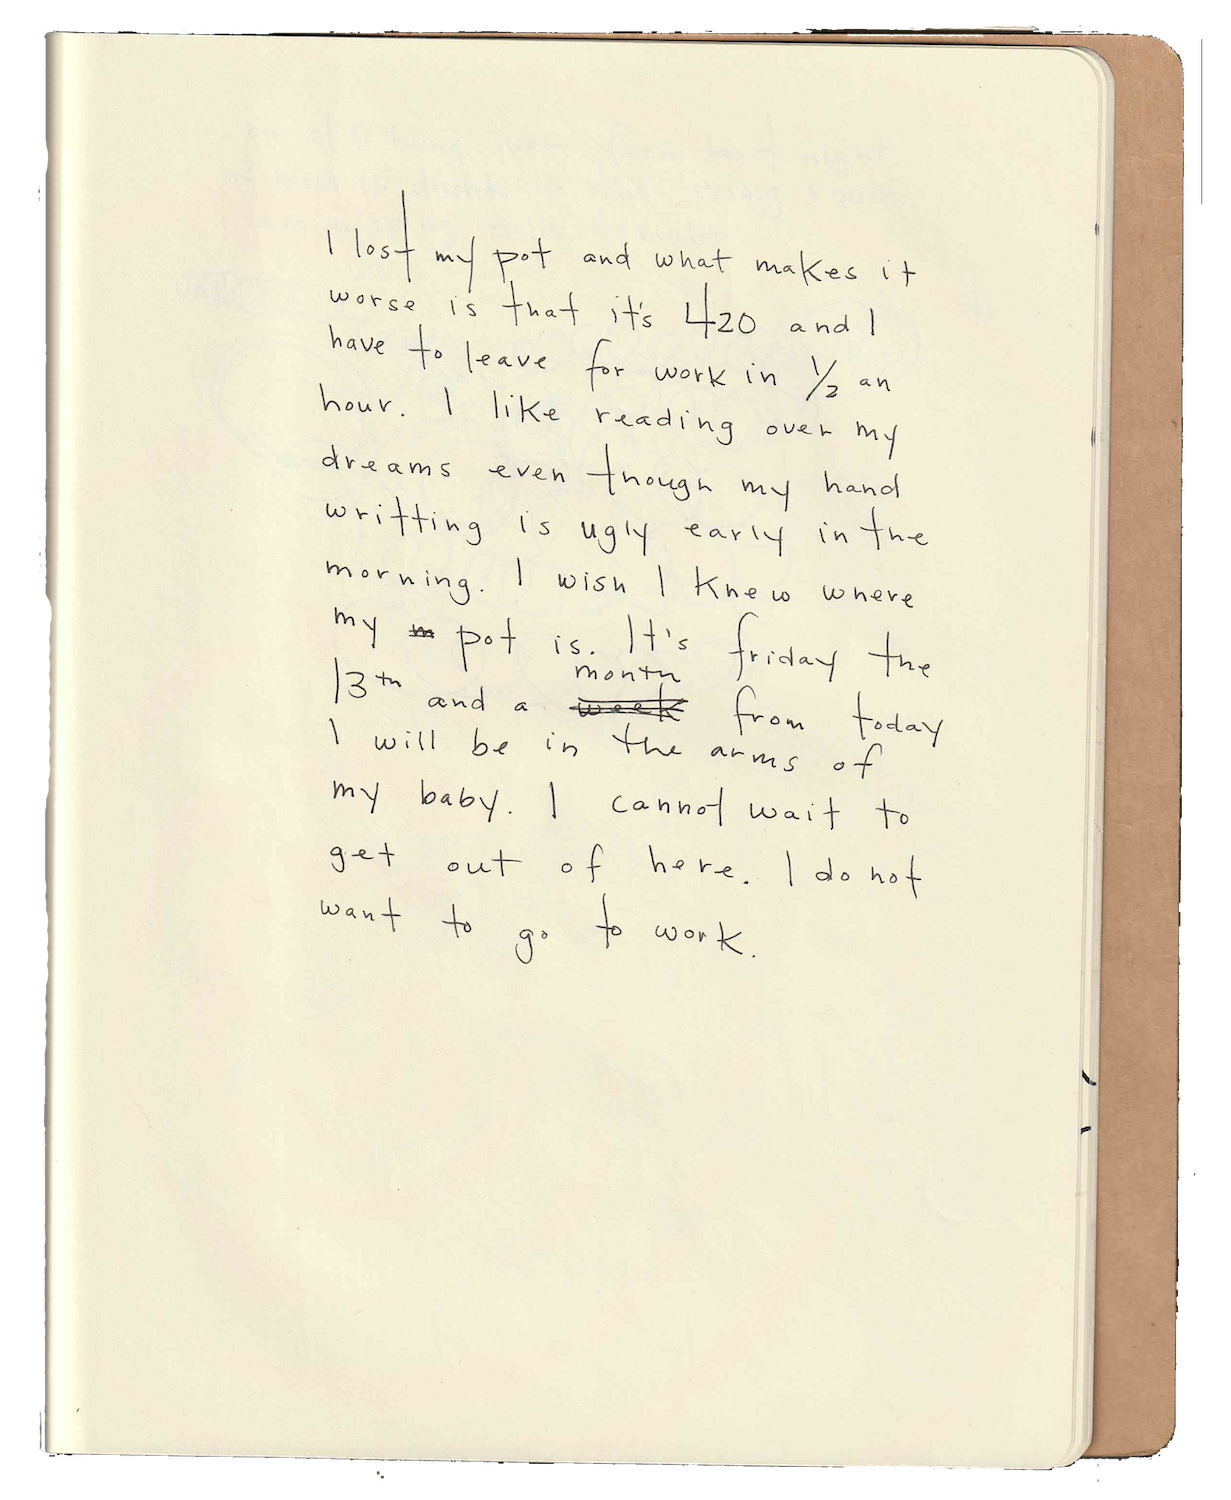 I lost my pot and what makes it
worse is that it's 420 and I
have to leave for work in 1/2 an
hour. I like reading over my
dreams even though my hand
writting is ugly early in the
morning. I wish I knew where
my m pot is. It's friday the
13th and a week month from today
I will be in the arms of
my baby. I cannot wait to
get out of here. I do not
want to go to work.